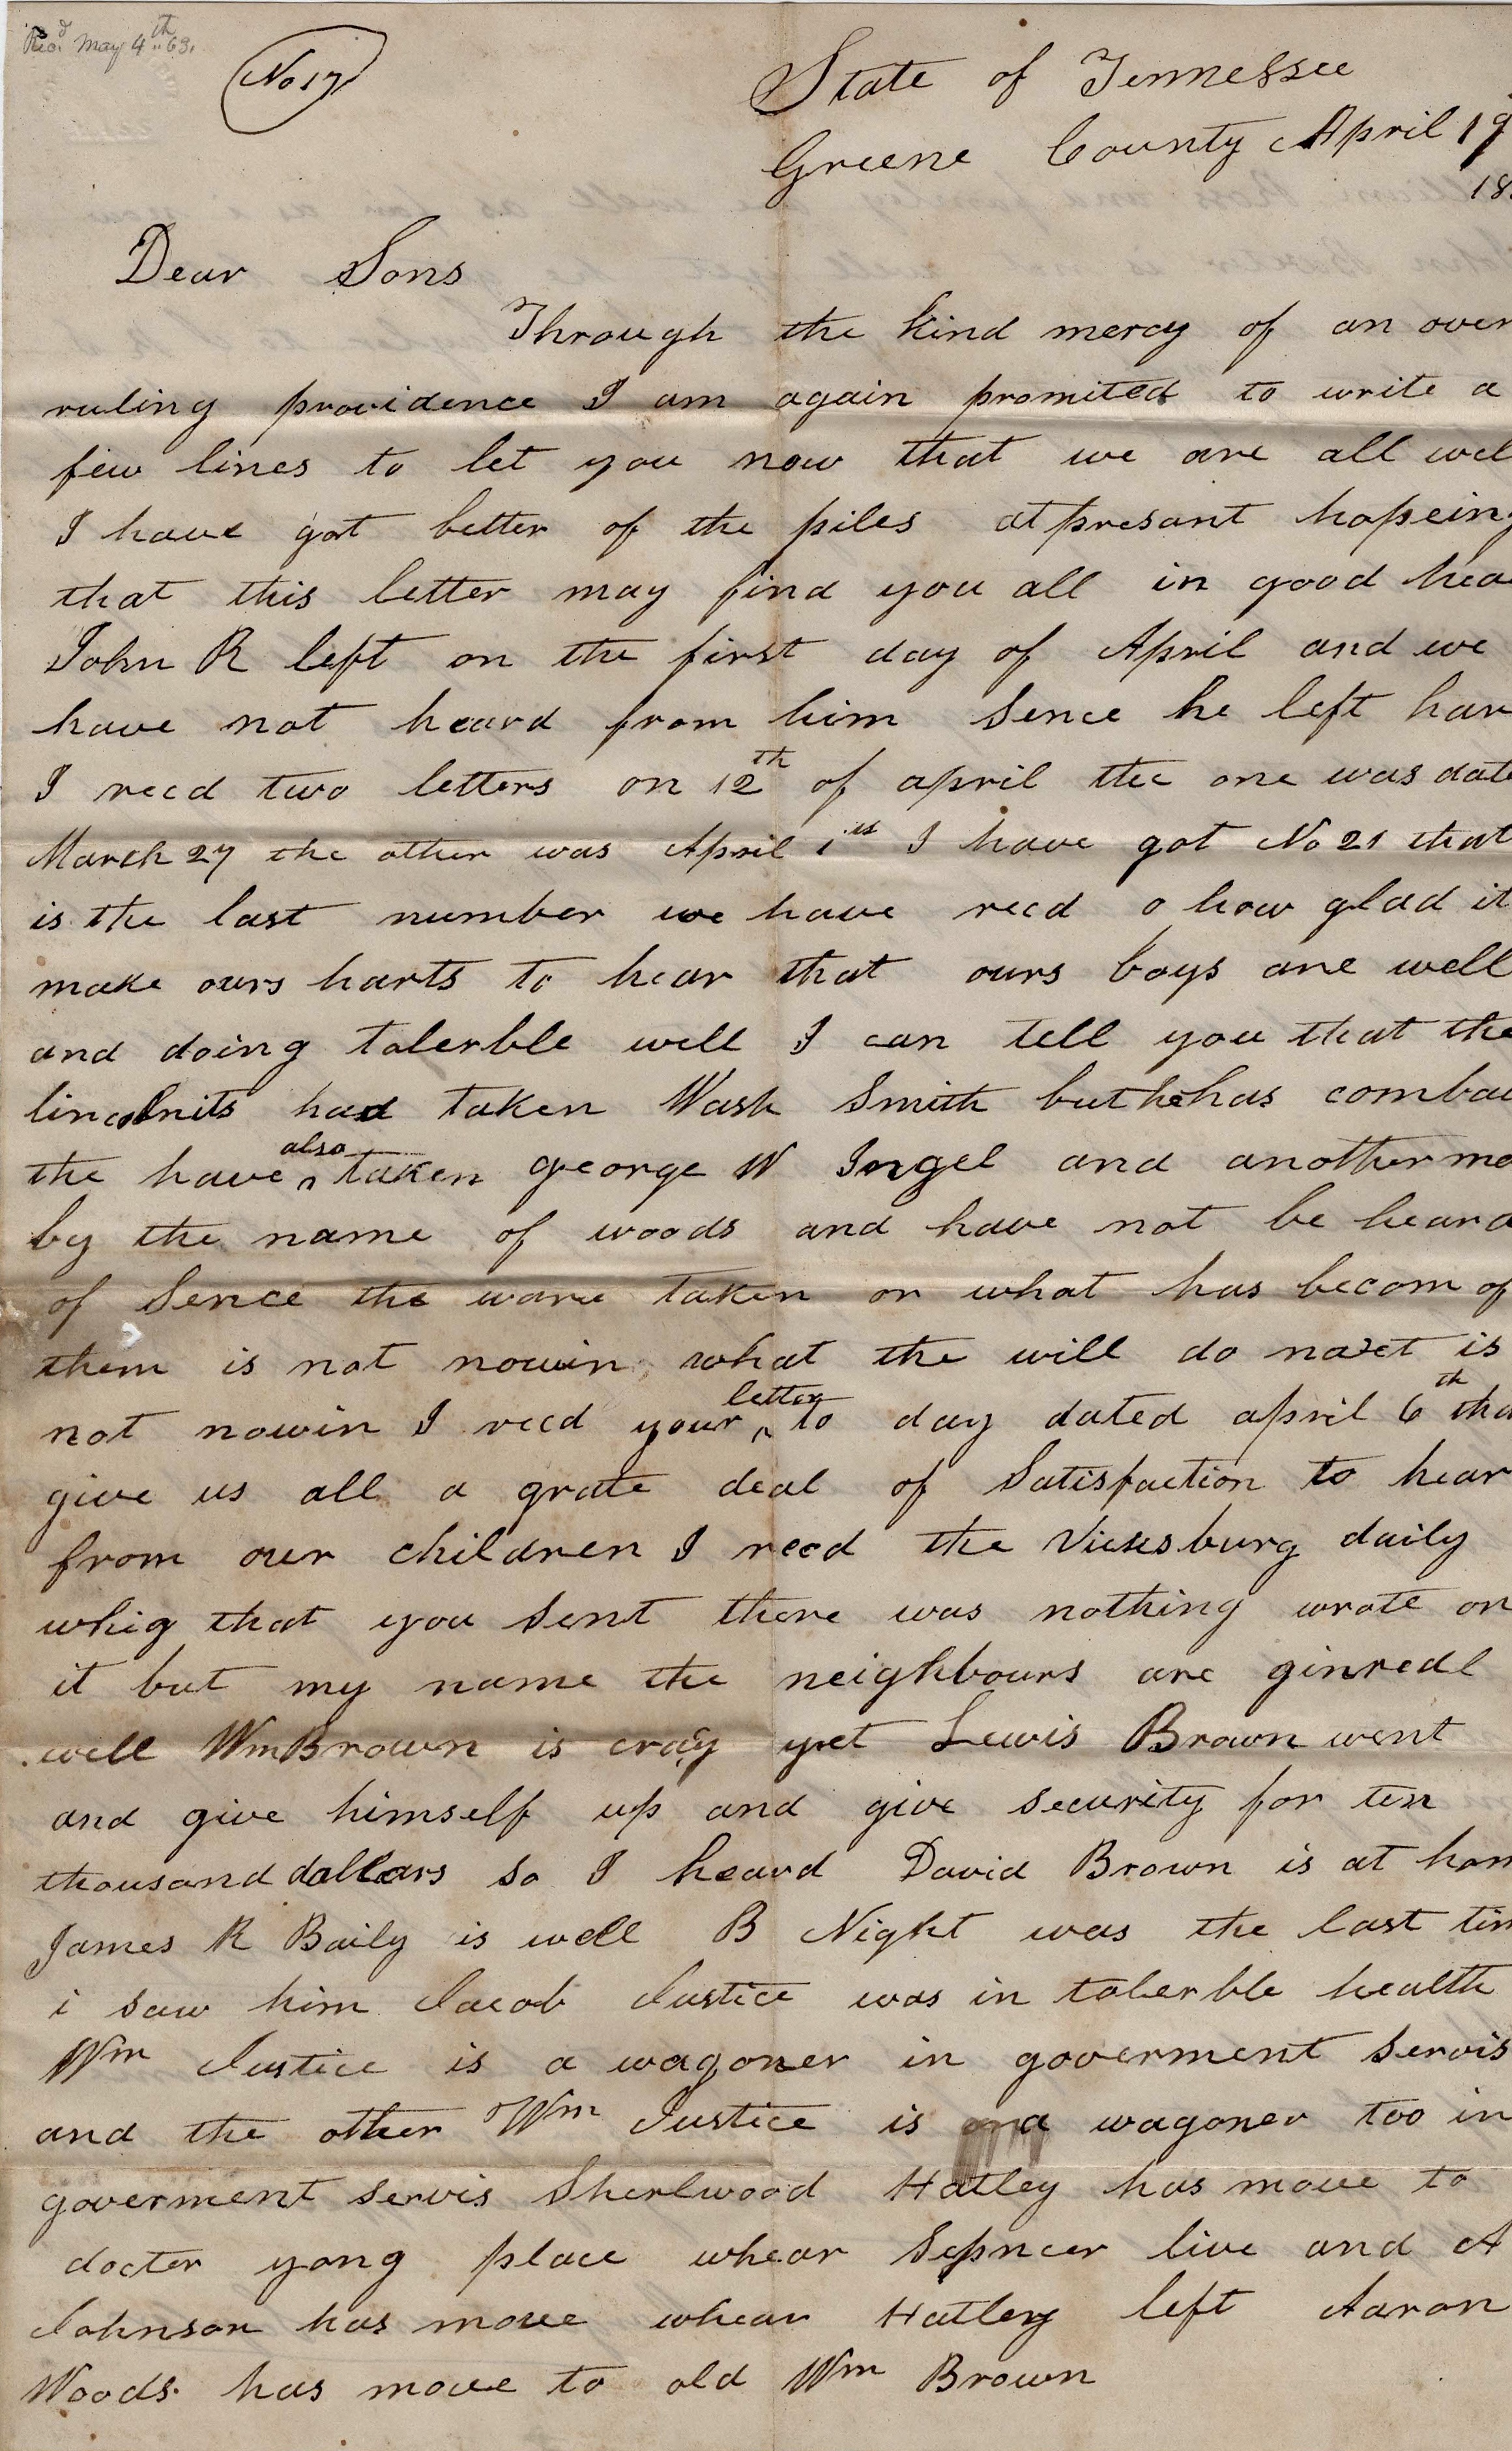 Recd May 4th 63.
No 17
State of Tennessee
Greene County April 19
18
Dear Sons
Through the kind mercy of an over
ruling providence I am again promited to write a
few lines to let you now that we are all wel
I have got better of the piles at presant hopeing
that this letter may find you all in good hea
John R left on the first day of April and we
have not heard from him sence he left har
I recd two letters on 12th of april the one was date
March 27 the other was April 1st I have got No 21 that
is the last number we have recd o how glad it
make ours harts to hear that ours boys are well
and doing tolerble well I can tell you that the
lincolnits had taken Wash Smith but he has comba
the have also taken george W Ingel and another ma
by the name of woods and have not be heard
of sence the ware taken or what has becom of
them is not nowin what the will do naxt is
not nowin I recd your letter to day dated april 6th tha
give us all a grate deal of Satisfaction to hear
from our children I recd the Vicksburg daily
whig that you sent there was nothing wrote on
it but my name the neighbours are ginredl
well Wm Brown is crazy yet Lewis Brown went
and give himself up and give security for ten
thousand dollars so I heard David Brown is at hom
James R Baily is well B Night was the last tim
i saw him Jacob Justice was in tolerble health
Wm Justice is a wagoner in goverment servis
and the other Wm Justice is a wagoner too in
goverment servis Sherlwood Hatley has move to
docter yong place whear Sepncer live and A
Johnson has move whear Hatley left Aaron
Woods has move to old Wm Brown